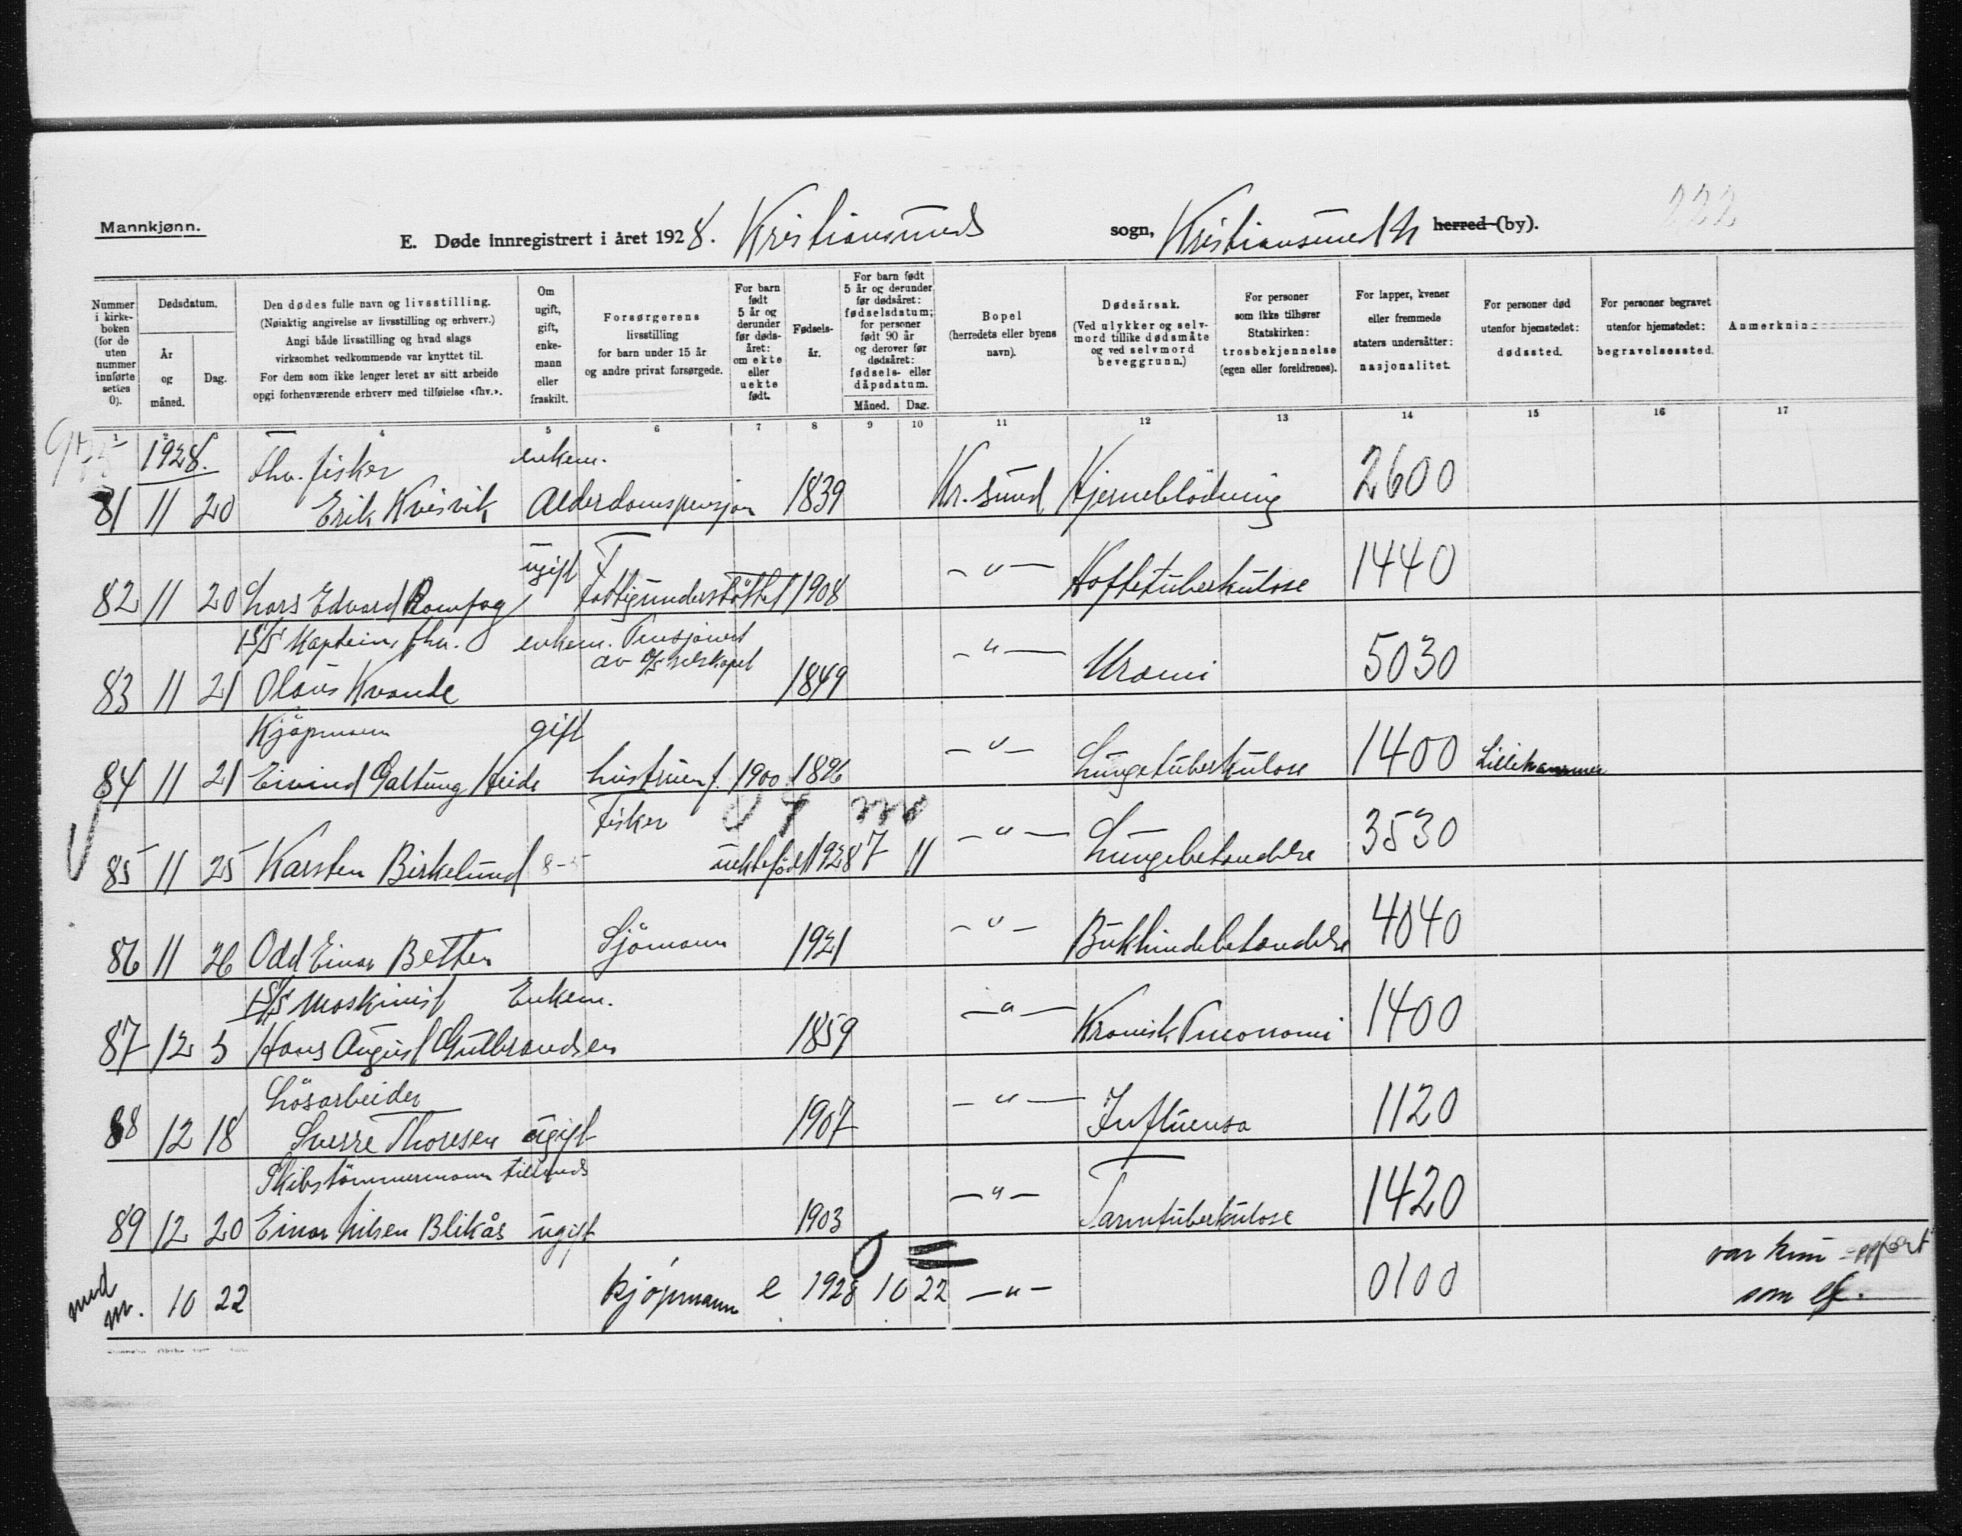 222
Mannkjønn.
E. Døde innregistrert i året 1928. Kristiansunds sogn, Kristiansund N herred (by).
Nummer i kirkeboken (for de uten nummer innførte settes 0).
Dødsdatum.
År og måned.
Dag.
Den dødes fulle navn og livsstilling.
(Nøiaktig angivelse av livsstilling og erhverv.)
Angi både livsstilling og hvad slags
virksomhet vedkommende var knyttet til.
For dem som ikke lenger levet av sitt arbeide
opgi forhenværende erhverv med tilføielse «fhv.».
Om ugift, gift, enkemann eller fraskilt.
Forsørgerens
livsstilling
for barn under 15 år
og andre privat forsørgede.
For barn født 5 år og derunder før dødsåret: om ekte eller uekte født.
Fødselsår.
For barn født 5 år og derunder før dødsåret: fødselsdatum; for personer født 90 år og derover før dødsåret: fødsels- eller dåpsdatum.
Måned. Dag.
Bopel
(herredets eller byens navn).
Dødsårsak.
(Ved ulykker og selvmord tillike dødsmåte og ved selvmord beveggrunn.)
For personer som ikke tilhører Statskirken: trosbekjennelse (egen eller foreldrenes).
For lapper, kvener eller fremmede staters undersåtter: nasjonalitet.
For personer død utenfor hjemstedet: dødssted.
For personer begravet utenfor hjemstedet: begravelsessted.
1 4 5 6 7 8 9 10 11 12 13 14 15 16 17
1928. Fhv. fisker enkem.
81 11 20 Erik Kvisvik Alderdomspensjon 1839 Kr.sund Hjerneblödning 2600
ugift
82 11 20 Lars Edvard Romfog Fattigunderstöttet 1908 -"- Hoftetuberkulose 1440
D/S Kaptein, fhv. enkem. Pensjonert
av D/S selskapet
83 11 21 Olaus Kvande 1849 -"- Uræmi 5030
Kjöpmann gift
84 11 21 Eivind Galtung Heide hustruen f. 1900 1896 -"- Lungetuberkulose 1400 Lillehammer
Fisker
85 11 25 Karsten Birkelund uektefödt 1928 7 11 -"- Lungebetændelse 3530
86 11 26 Odd Einar Betten Sjömann 1921 -"- Bukhindebetændelse 4040
D/S Maskinist Enkem.
87 12 5 Hans August Gulbrandsen 1859 -"- Kronisk Pneomoni 1400
Lösarbeider
88 12 18 Sverre Thoresen ugift 1907 -"- Influensa 1120
Skibstömmermann tillands
89 12 20 Einar Nilsen Blikås ugift 1903 -"- Tarmtuberkulose 1420
var kun oppført
10 22 kjøpmann e 1928 10 22 -"- 0100 som